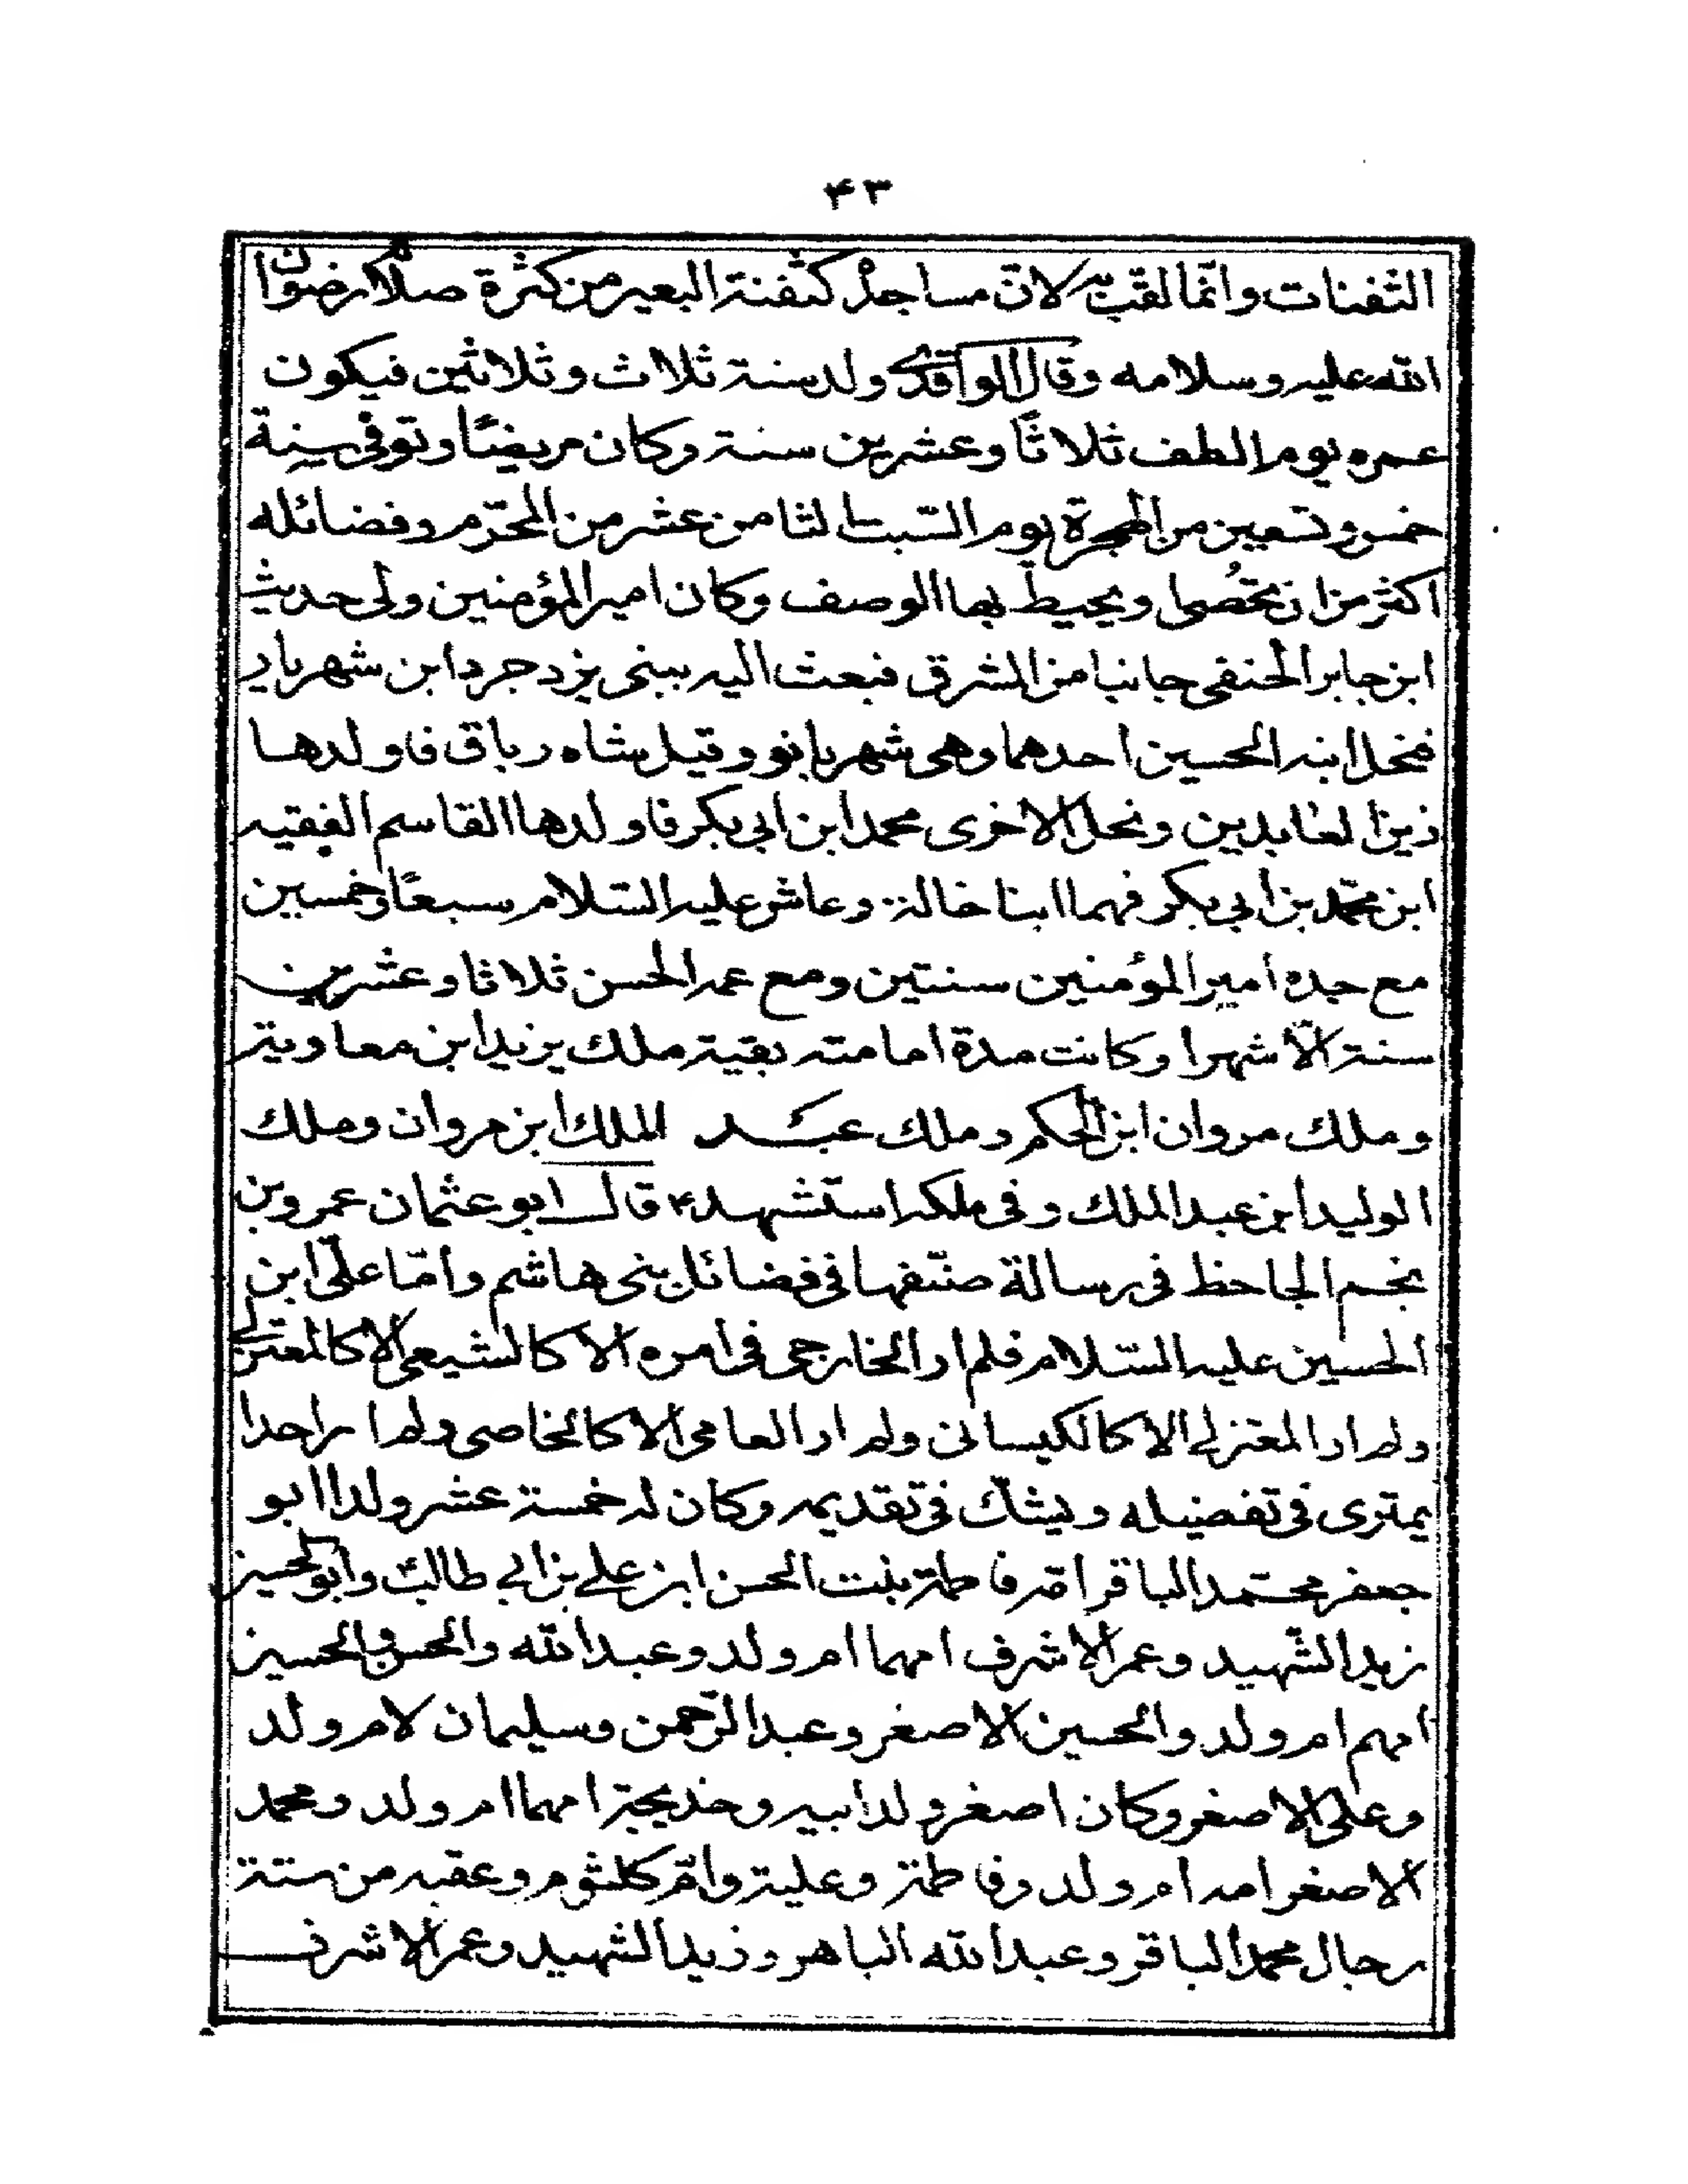 ۴۳
الثفنات وانّما لقّب به لانّ مساجده كثفنة البعير من كثرة صلاته رضوان
الله عليه وسلامه وقال الواقدي ولد سنة ثلاث وثلاثين فيكون
عمره يوم الطف ثلاثاً وعشرين سنة وكان مريضًا وتوفى سنة
خمس وتسعين من الهجرة يوم السّبت لثامن عشر من المحرّم وفضائله
اكثر من ان تُحصى ويحيط بها الوصف وكان امير المؤمنين ولى حديث
ابن جابر الحنفى جانبا من المشرق فبعث اليه ببنى يزدجرد ابن شهريار
فنحل ابنه الحسين احدهما وهى شهر بانو وقيل شاه رباق فاولدها
زين العابدين ونحل الاخرى محمد ابن ابى بكر فاولدها القاسم الفقيه
ابن محمّد بن ابي بكر فهما ابنا خالة وعاش عليه السّلام سبعًا وخمسين
مع جده امير المؤمنين سنتين ومع عمه الحسن ثلاثا وعشرين
سنة الّا شهرا وكانت مدة امامته بقية ملك يزيد ابن معاوية
وملك مروان ابن الحكم وملك عبد الملك ابن مروان وملك
الوليد ابن عبد الملك وفى ملكه استشهد ۴ قال ابو عثمان عمرو بن
نجم الجاحظ فى رسالة صنّفها فى فضائل بنى هاشم وامّا علىّ ابن
الحسين عليه السّلام فلم ار الخارجى فى امره الا كالشيعى الا كالمعتزلي
ولم ار المعتزلي الا كالكيسانى ولم ار العامى الا كالخاصى ولم ار احدا
يمترى فى تفضيله ويشكّ فى تقديمه وكان له خمسة عشر ولدا ابو
جعفر محمّد الباقر امّه فاطمة بنت الحسن ابن علي بن ابي طالب وابو الحسين
زيد الشّهيد وعمر الاشرف امهما ام ولد وعبد الله والحسن والحسين
امهم ام ولد والحسين الاصغر وعبد الرّحمن وسليمان لام ولد
وعلى الاصغر وكان اصغر ولد ابيه وخديجة امهما ام ولد ومحمد
الاصغر امه ام ولد وفاطمة وعلية وامّ كلثوم وعقبه من ستة
رجال محمد الباقر وعبد الله الباهر وزيد الشهيد وعمر الاشرف